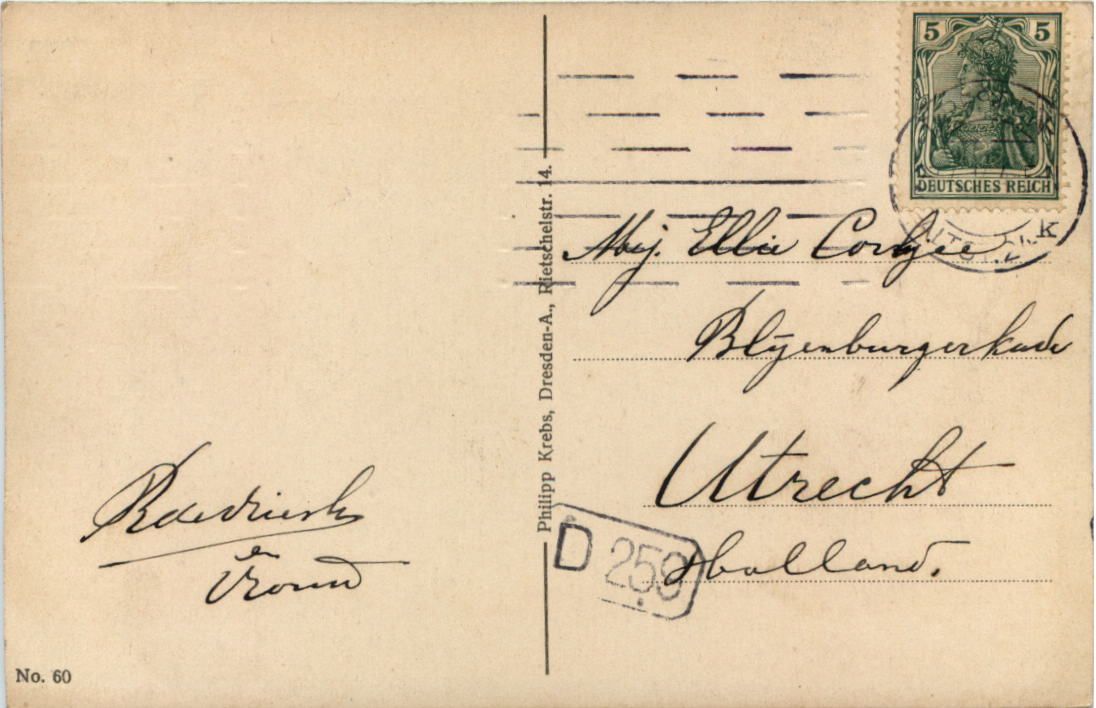 5 5
DEUTSCHES REICH
Mej. Ellie
Blijenburgerkade
Utrecht
Holland.
D 259
en
Vrouw
Philipp Krebs, Dresden-A., Rietschelstr. 14.
No. 60